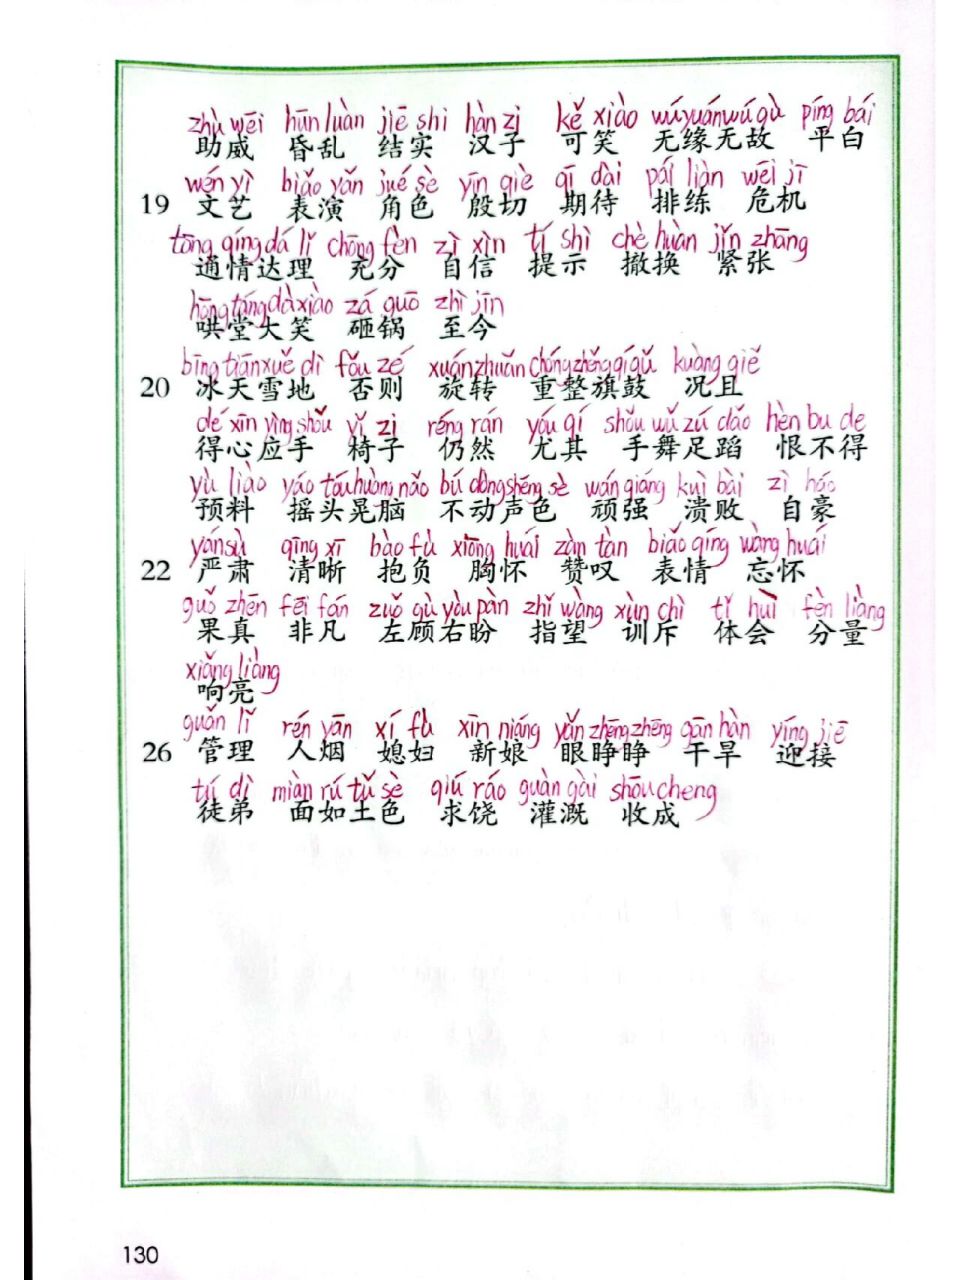 zhù wēi hūn luàn jiē shi hàn zi kě xiào wú yuán wú gù píng bái
助威 昏乱 结实 汉子 可笑 无缘无故 平白
wén yì biǎo yǎn jué sè yīn qiè qī dài pái liàn wēi jī
19 文艺 表演 角色 殷切 期待 排练 危机
tōng qíng dá lǐ chōng fèn zì xìn tí shì chè huàn jǐn zhāng
通情达理 充分 自信 提示 撤换 紧张
hōng táng dà xiào zá guō zhì jīn
哄堂大笑 砸锅 至今
bīng tiān xuě dì fǒu zé xuán zhuǎn chóng zhěng qí gǔ kuàng qiě
20 冰天雪地 否则 旋转 重整旗鼓 况且
dé xīn yìng shǒu yǐ zi réng rán yóu qí shǒu wǔ zú dǎo hèn bu de
得心应手 椅子 仍然 尤其 手舞足蹈 恨不得
yù liào yáo tóu huàng nǎo bú dòng shēng sè wán qiáng kuì bài zì háo
预料 摇头晃脑 不动声色 顽强 溃败 自豪
yán sù qīng xī bào fù xiōng huái zàn tàn biǎo qíng wàng huái
22 严肃 清晰 抱负 胸怀 赞叹 表情 忘怀
guǒ zhēn fēi fán zuǒ gù yòu pàn zhǐ wàng xùn chì tǐ huì fèn liàng
果真 非凡 左顾右盼 指望 训斥 体会 分量
xiǎng liàng
响亮
guǎn lǐ rén yān xí fù xīn niáng yǎn zhēng zhēng gān hàn yíng jiē
26 管理 人烟 媳妇 新娘 眼睁睁 干旱 迎接
tú dì miàn rú tǔ sè qiú ráo guàn gài shōu cheng
徒弟 面如土色 求饶 灌溉 收成
130